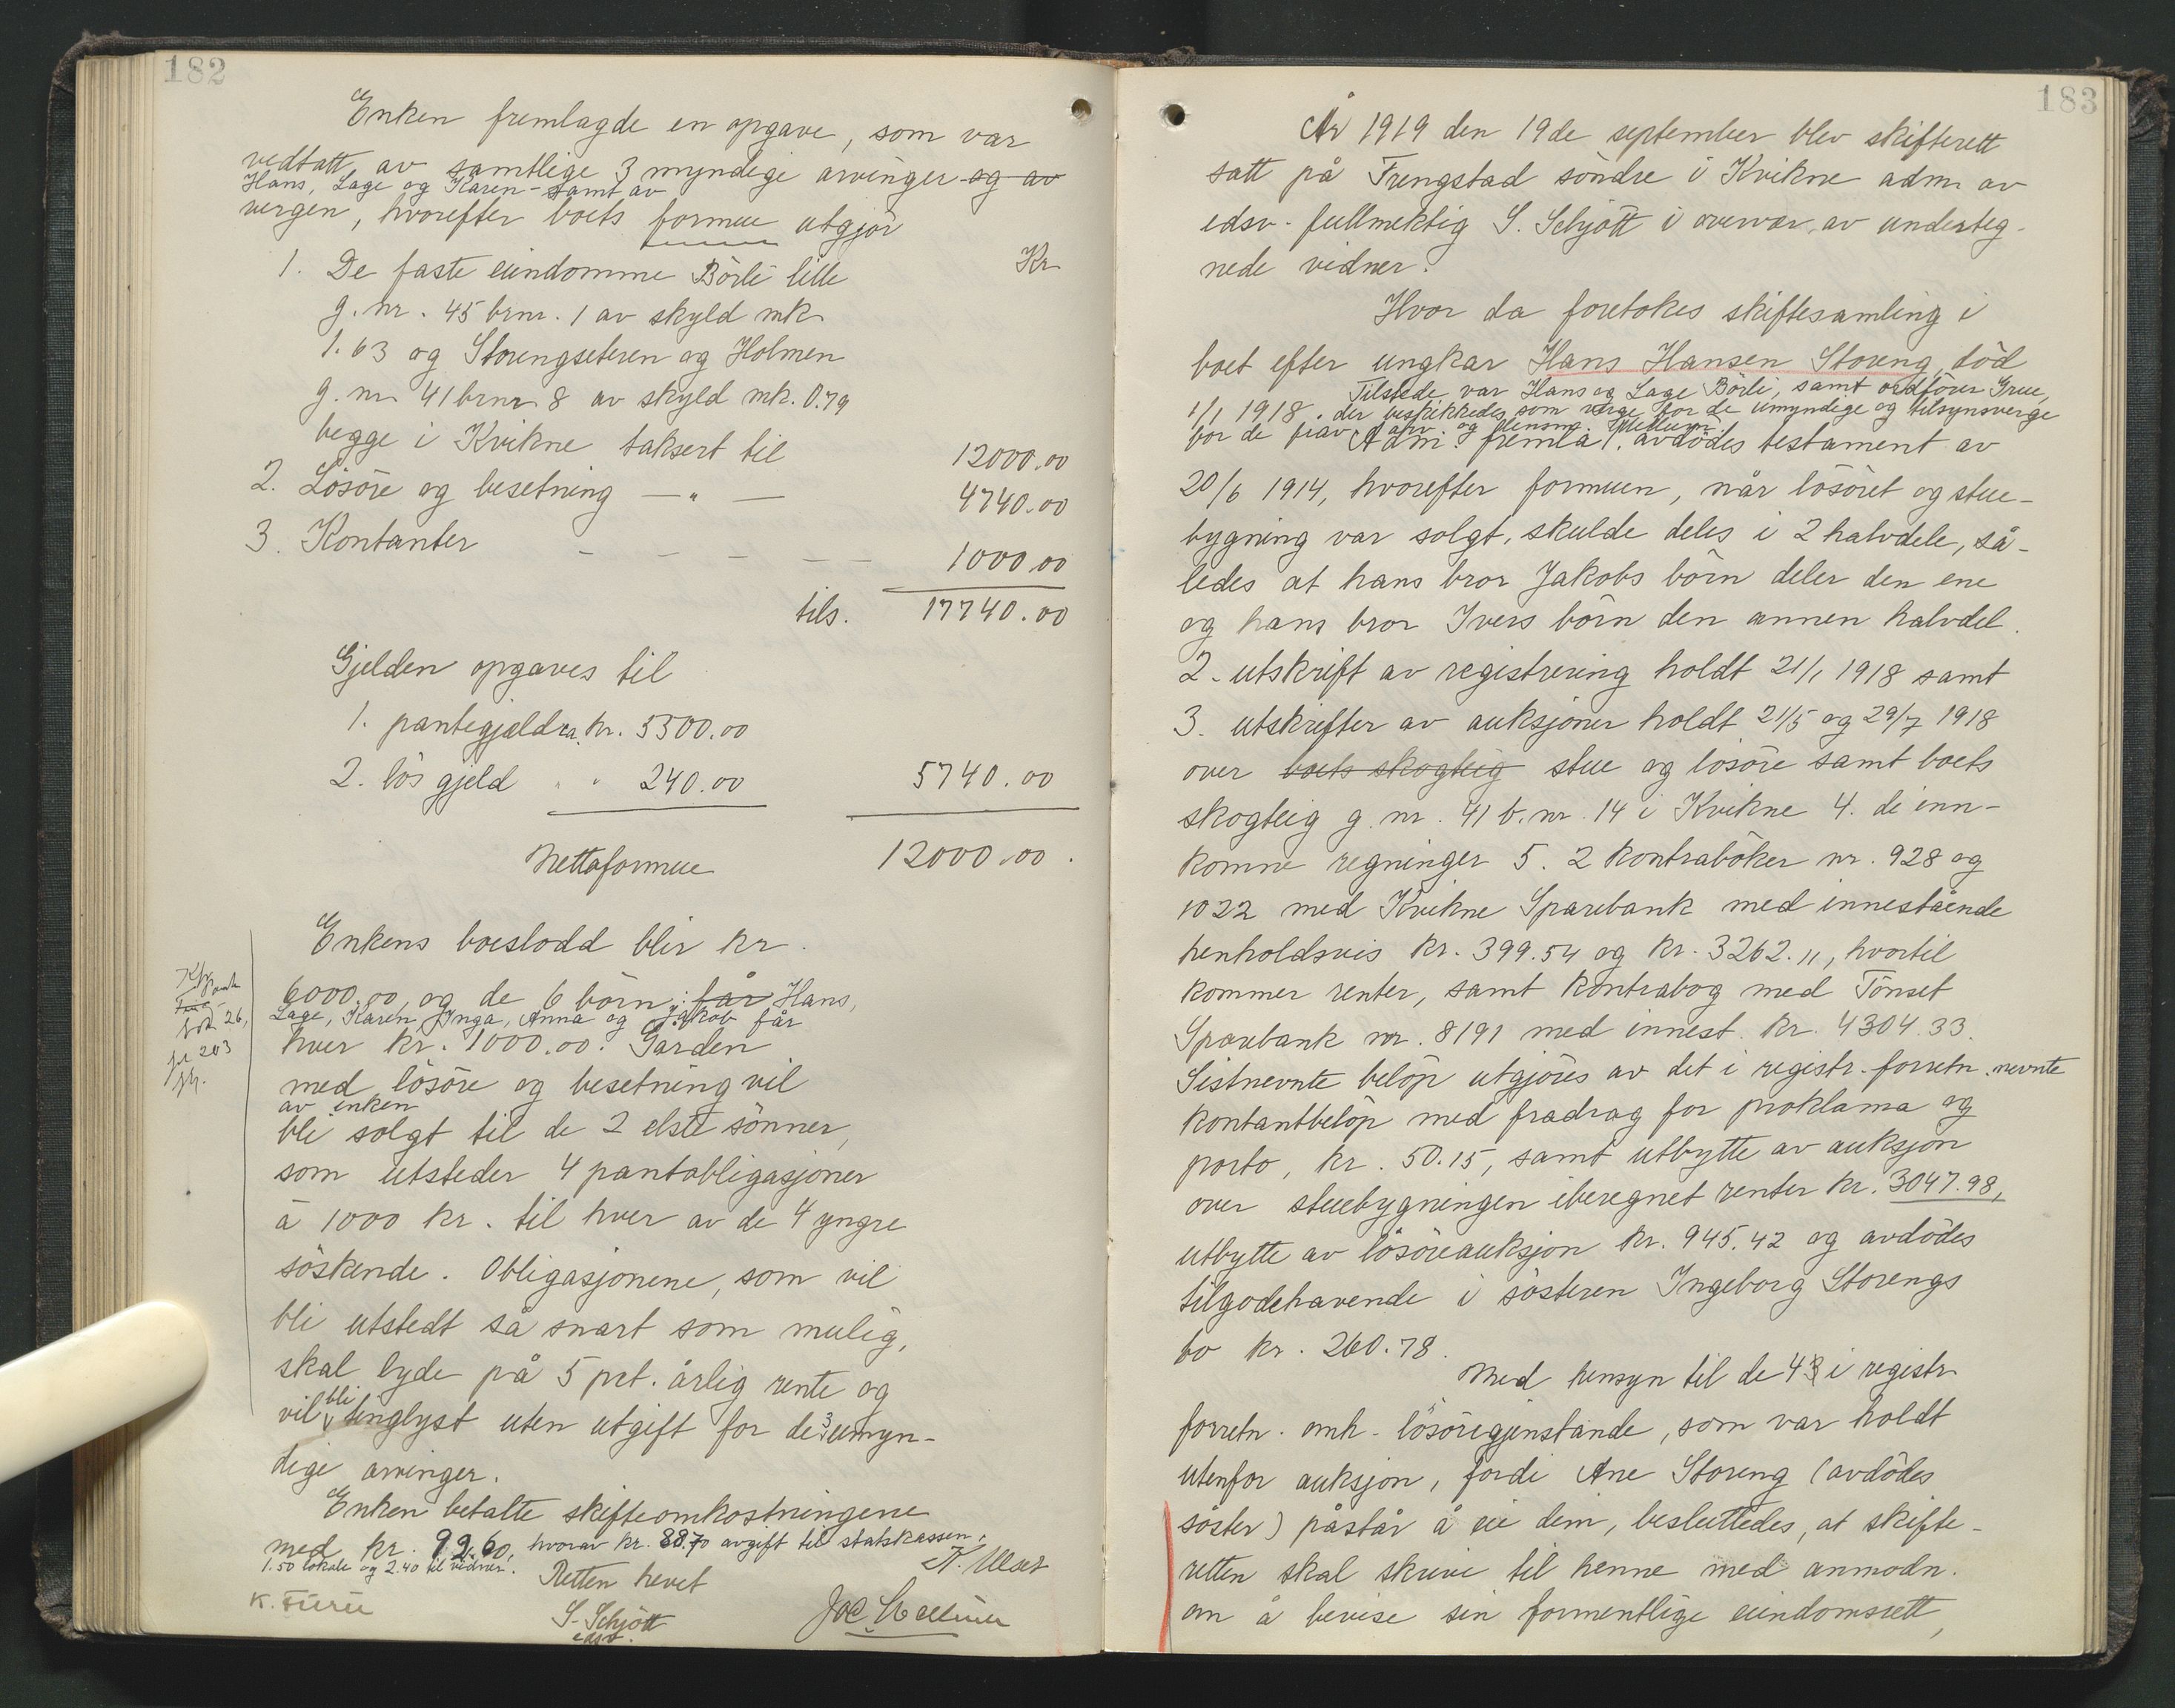 182
Enken fremlagde en opgave, som var
vedtatt av samtlige 3 myndige arvinger og av
Hans, Lage og Karen - samt av
vergen, hvorefter boets formue utgjör
Kr.
1. De faste eiendomme Börli lille
g. nr. 45 brnr. 1 av skyld mk.
1.63 og Storengseteren og Holmen
g. nr. 41 brnr. 8 av skyld mk. 0.79
begge i Kvikne taksert til 12000.00
2. Lösöre og besetning — " — 4740.00
3. Kontanter - - - - 1000.00
tils. 17740.00
Gjelden opgaves til
1. pantegjeld ca. kr. 5500.00
2. lös gjeld " " 240.00 5740.00
Nettoformue 12000.00.
Enkens boeslodd blir kr.
6000.00, og de 6 börn: får Hans,
Lage, Karen, Inga, Anna og Jakob får
hver kr. 1000.00. Garden
med lösöre og besetning vil
av enken
bli solgt til de 2 elste sönner,
som utsteder 4 pantobligasjoner
à 1000 kr. til hver av de 4 yngre
söskende. Obligasjonene, som vil
bli utstedt så snart som mulig,
skal lyde på 5 pct. årlig rente og
vil bli tinglyst uten utgift for de 3 umyn-
dige arvinger.
Enken betalte skifteomkostningene
med kr. 92.60, hvorav kr. 88.70 avgift til statskassen,
1.50 lokale og 2.40 til vidner.
Retten hevet
K. Furu
S. Schjött
edsv.
183
År 1919 den 19de september blev skifterett
satt på Frengstad söndre i Kvikne adm. av
edsv. fullmektig S. Schjött i overvær av underteg-
nede vidner.
Hvor da foretokes skiftesamling i
boet efter ungkar Hans Hansen Storeng, död
Tilstede var Hans og Lage Börli, samt ordförer Grue,
1/1 1918. der beskikkedes som verge for de umyndige og tilsynsverge
for de frav. arv. og lensm.
Adm. fremla 1. avdödes testament av
20/6 1914, hvorefter formuen, når lösöret og stue-
bygning var solgt, skulde deles i 2 halvdele, så-
ledes at hans bror Jakobs börn deler den ene
og hans bror Ivers börn den annen halvdel.
2. utskrift av registrering holdt 21/1 1918 samt
3. utskrifter av auksjoner holdt 21/5 og 29/7 1918
over boets skogteig stue og lösöre samt boets
skogteig g. nr. 41 b. nr. 14 i Kvikne 4. de inn-
komne regninger 5. 2 kontraböker nr. 928 og
1022 med Kvikne Sparebank med innestående
henholdsvis kr. 399.54 og kr. 3262.11, hvortil
kommer renter, samt kontrabog med Tönset
Sparebank nr. 8191 med innest. kr. 4304.33.
Sistnevnte belöp utgjöres av det i registr. forretn. nevnte
kontantbelöp med fradrag for proklama og
porto, kr. 50.15, samt utbytte av auksjon
over stuebygningen iberegnet renter kr. 3047.98,
utbytte av lösöreauksjon kr. 945.42 og avdödes
tilgodehavende i sösteren Ingeborg Storengs
bo kr. 260.78.
Med hensyn til de 4 i registr.
forretn. omh. lösöregjenstande, som var holdt
utenfor auksjon, fordi Ane Storeng (avdödes
söster) påstår å eie dem, besluttedes, at skifte-
retten skal skrive til henne med anmodn.
om å bevise sin formentlige eiendomsrett,